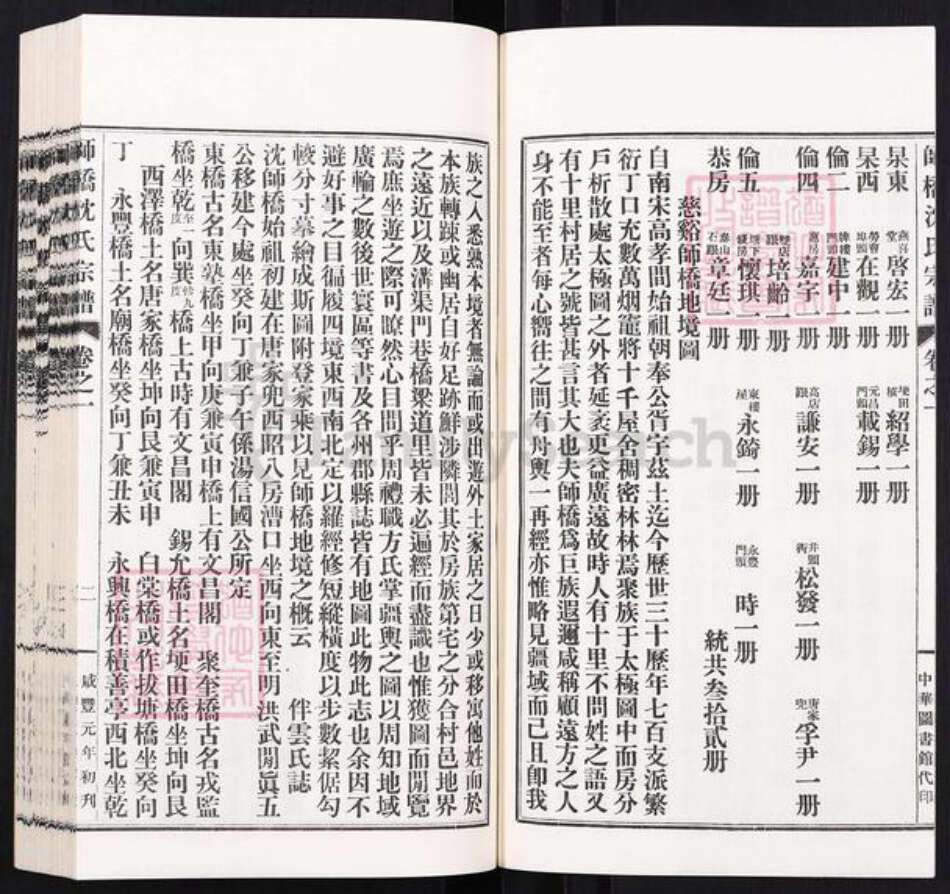 師橋沈氏宗譜 卷之一
杲東 燕喜堂 啓宏一册 埂田橫 紹學一册
杲西 勞賚埠頭 在觀一册 元昌門頭 載錫一册
倫二 牌樓門頭 建中一册
倫四 嘉宇一册 高店跟 謙安一册 井頭街 松發一册 唐家兜 孚尹一册
培齡一册
倫五 懷琪一册 東樓屋 永錡一册 永豐門頭 時一册
恭房 石跟 章廷一册 統共叁拾貳册
慈谿師橋地境圖
自南宋高孝間始祖朝奉公胥宇茲土迄今歷世三十歷年七百支派繁
衍丁口充數萬烟竈將十千屋舍稠密林林焉聚族于太極圖中而房分
戶析散處太極圖之外者延袤更益廣遠故時人有十里不問姓之語又
有十里村居之號皆甚言其大也夫師橋爲巨族遐邇咸稱顧遠方之人
身不能至者每心嚮往之間有舟輿一再經亦惟略見疆域而已且卽我
中華圖書館代印
族之人悉熟本境者無論而或出遊外土家居之日少或移寓他姓而於
本族轉踈或幽居自好足跡鮮涉隣閭其於房族第宅之分合村邑地界
之遠近以及溝渠門巷橋梁道里皆未必遍經而盡識也惟獲圖而閒覽
焉庶坐遊之際可瞭然心目間乎周禮職方氏掌疆輿之圖以周知地域
廣輪之數後世寰區等書及各州郡縣誌皆有地圖此物此志也余因不
避好事之目徧履四境東西南北定以羅經修短縱橫度以步數絜倨勾
較分寸摹繪成斯圖附登家乘以見師橋地境之概云 伴雲氏誌
沈師橋始祖初建在唐家兜西昭八房漕口坐西向東至明洪武閒眞五
公移建今處坐癸向丁兼子午係湯信國公所定
東橋古名東塾橋坐甲向庚兼寅申橋上有文昌閣 聚奎橋古名戎監
橋坐乾 向巽 橋上古時有文昌閣 錫允橋土名埂田橋坐坤向艮
西澤橋土名唐家橋坐坤向艮兼寅申 白棠橋或作拔塘橋坐癸向
丁 永豐橋土名廟橋坐癸向丁兼丑未 永興橋在積善亭西北坐乾
師橋沈氏宗譜 卷之一 二 咸豐元年初刊
FamilySearch